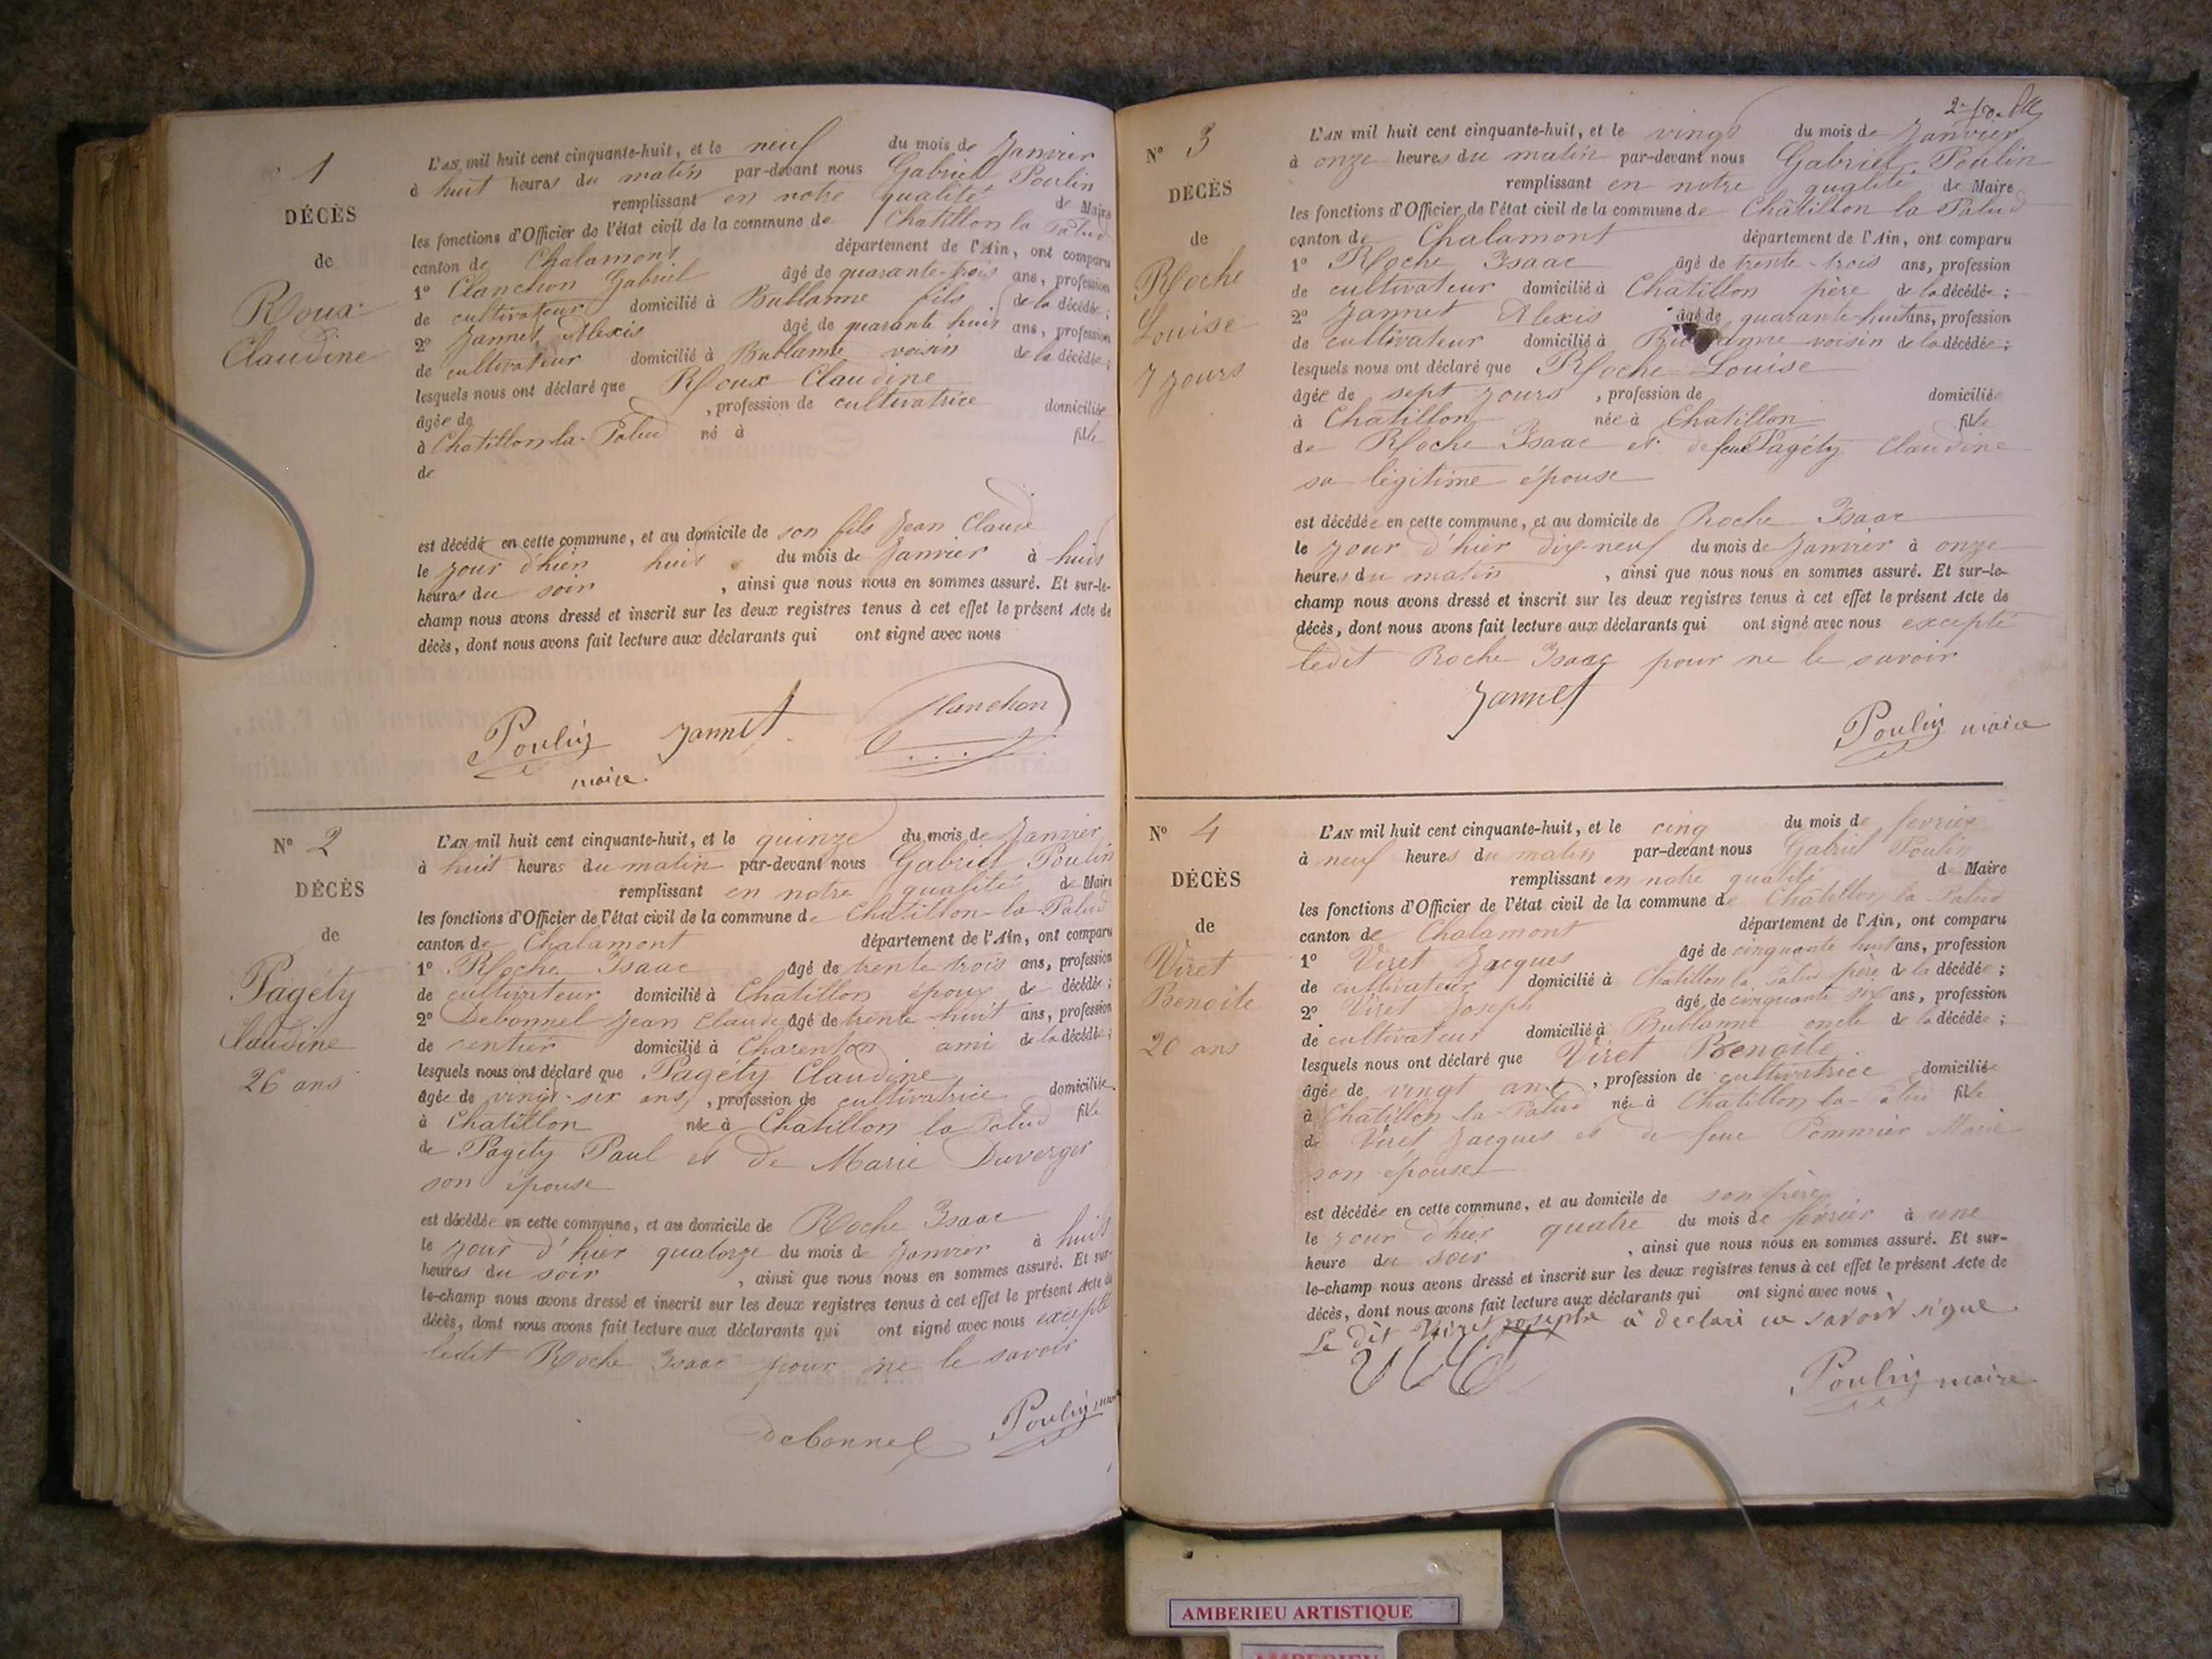 1
DÉCÈS
de
Roux
Claudine
L'AN mil huit cent cinquante-huit, et le neuf du mois de Janvier
à huit heures du matin par-devant nous Gabriel Poulin
remplissant en notre qualité de Maire
les fonctions d'Officier de l'état civil de la commune de Chatillon la Palud
canton de Chalamont département de l'Ain, ont comparu
1° Clanchon Gabriel âgé de quarante-trois ans, profession
de cultivateur domicilié à Bublanne fils de la décédée;
2° Jannet Alexis âgé de quarante huit ans, profession
de cultivateur domicilié à Bublanne voisin de la décédée;
lesquels nous ont déclaré que Roux Claudine
âgée de , profession de cultivatrice domiciliée
à Chatillon-la-Palud né à fille
de
est décédé en cette commune, et au domicile de son fils Jean Claude
le jour d'hier huit du mois de Janvier à huit
heures du soir , ainsi que nous nous en sommes assuré. Et sur-le-
champ nous avons dressé et inscrit sur les deux registres tenus à cet effet le présent Acte de
décès, dont nous avons fait lecture aux déclarants qui ont signé avec nous
Poulin Jannet Clanchon
maire.
N° 2
DÉCÈS
de
Pagéty
Claudine
26 ans
L'AN mil huit cent cinquante-huit, et le quinze du mois de Janvier
à huit heures du matin par-devant nous Gabriel Poulin
remplissant en notre qualité de Maire
les fonctions d'Officier de l'état civil de la commune de Chatillon-la-Palud
canton de Chalamont département de l'Ain, ont comparu
1° Roche Isaac âgé de trente trois ans, profession
de cultivateur domicilié à Chatillon époux de décédée;
2° Debonnel Jean Claude âgé de trente huit ans, profession
de rentier domicilié à Charenton ami de la décédée;
lesquels nous ont déclaré que Pagéty Claudine
âgée de vingt-six ans , profession de cultivatrice domiciliée
à Chatillon née à Chatillon la Palud fille
de Pagéty Paul et de Marie Duverger
son épouse
est décédée en cette commune, et au domicile de Roche Isaac
le jour d'hier quatorze du mois de Janvier à huit
heures du soir , ainsi que nous nous en sommes assuré. Et sur-
le-champ nous avons dressé et inscrit sur les deux registres tenus à cet effet le présent Acte de
décès, dont nous avons fait lecture aux déclarants qui ont signé avec nous excepté
ledit Roche Isaac pour ne le savoir
Debonnel Poulin maire
N° 3
DÉCÈS
de
Roche
Louise
7 jours
L'AN mil huit cent cinquante-huit, et le vingt du mois de Janvier
à onze heures du matin par-devant nous Gabriel Poulin
remplissant en notre qualité de Maire
les fonctions d'Officier de l'état civil de la commune de Châtillon la Palud
canton de Chalamont département de l'Ain, ont comparu
1° Roche Isaac âgé de trente-trois ans, profession
de cultivateur domicilié à Chatillon père de la décédée;
2° Jannet Alexis âgé de quarante-huit ans, profession
de cultivateur domicilié à Bublanne voisin de la décédée;
lesquels nous ont déclaré que Roche Louise
âgée de sept jours , profession de domiciliée
à Chatillon née à Chatillon fille
de Roche Isaac et de feue Pagéty Claudine
sa légitime épouse
est décédée en cette commune, et au domicile de Roche Isaac
le jour d'hier dix-neuf du mois de Janvier à onze
heures du matin , ainsi que nous nous en sommes assuré. Et sur-le-
champ nous avons dressé et inscrit sur les deux registres tenus à cet effet le présent Acte de
décès, dont nous avons fait lecture aux déclarants qui ont signé avec nous excepté
ledit Roche Isaac pour ne le savoir
Jannet
Poulin maire
N° 4
DÉCÈS
de
Viret
Benoite
20 ans
L'AN mil huit cent cinquante-huit, et le cinq du mois de fevrier
à neuf heures du matin par-devant nous Gabriel Poulin
remplissant en notre qualité de Maire
les fonctions d'Officier de l'état civil de la commune de Châtillon la Palud
canton de Chalamont département de l'Ain, ont comparu
1° Viret Jacques âgé de cinquante huit ans, profession
de cultivateur domicilié à Chatillon la Palud père de la décédée;
2° Viret Joseph âgé de cinquante six ans, profession
de cultivateur domicilié à Bublanne oncle de la décédée;
lesquels nous ont déclaré que Viret Benoite
âgée de vingt ans , profession de cultivatrice domiciliée
à Chatillon-la-Palud née à Chatillon-la-Palud fille
de Viret Jacques et de feue Pommier Marie
son épouse
est décédée en cette commune, et au domicile de son père
le jour d'hier quatre du mois de février à une
heure du soir , ainsi que nous nous en sommes assuré. Et sur-
le-champ nous avons dressé et inscrit sur les deux registres tenus à cet effet le présent Acte de
décès, dont nous avons fait lecture aux déclarants qui ont signé avec nous
Le dit Viret Joseph à declaré ne savoir signé
Poulin maire
AMBERIEU ARTISTIQUE
AMBERIEU